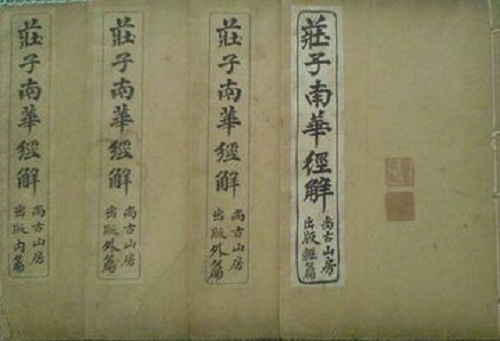 莊子南華經解
尚古山房
出版雜篇
莊子南華經解
尚古山房
出版外篇
莊子南華經解
尚古山房
出版外篇
莊子南華經解
尚古山房
出版内篇